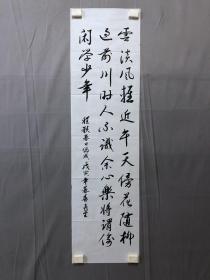 雲淡風輕近午天傍花随柳
过前川时人不識余心樂将谓偷
闲学少年
程颢春日偶成戊寅年